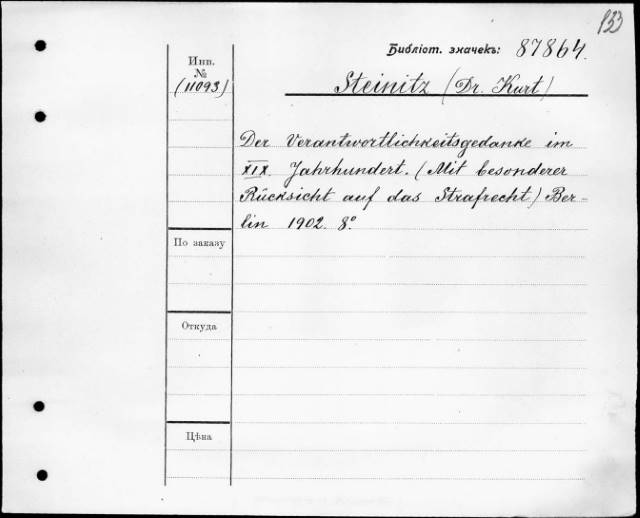 153
Библіот. значекъ: 87864.
Инв.
№
(11093)
Steinitz (Dr. Kurt)
Der Verantwortlichkeitsgedanke im
XIX. Jahrhundert. (Mit besonderer
Rücksicht auf das Strafrecht) Ber-
lin 1902. 8°.
По заказу
Откуда
Цѣна